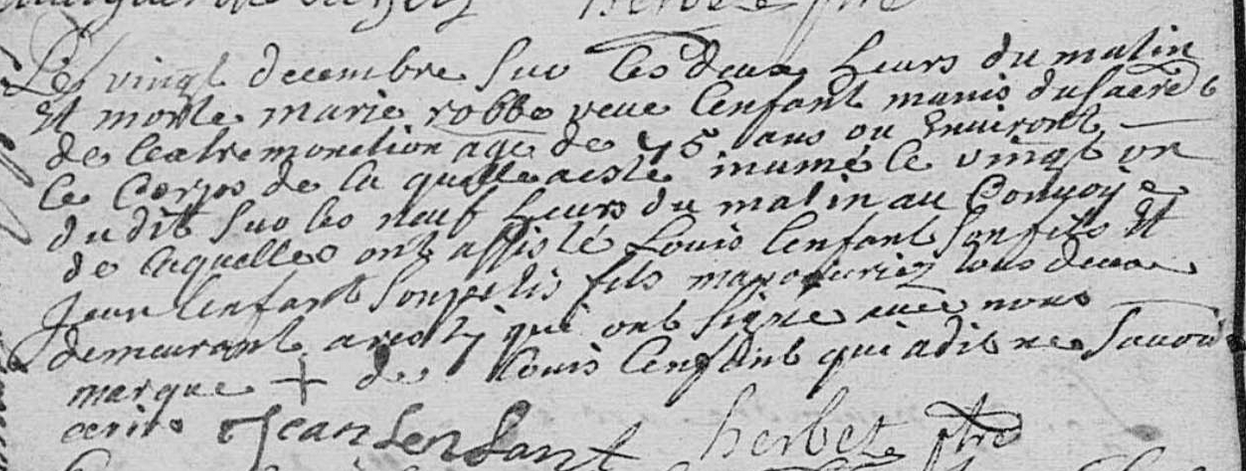 herbet ptre
Le vingt decembre sur les deux heurs du matin
Et morte marie robbe veue Lenfant munis du sacre
de lextremonction age de 75 ans ou Environt
le Corps de la quelle a esté inumé le vingt un
du dit sur les neuf heurs du matin au Convoy
de laquelle ont assisté Louis Lenfant son fils Et
Jean Lenfant son petis fils manouvriez tous deux
demeurant a qui ont signe avec nous
marque + de Louis Lenfant qui a dit ne savoir
ecrire Jean Lenfant herbet ptre